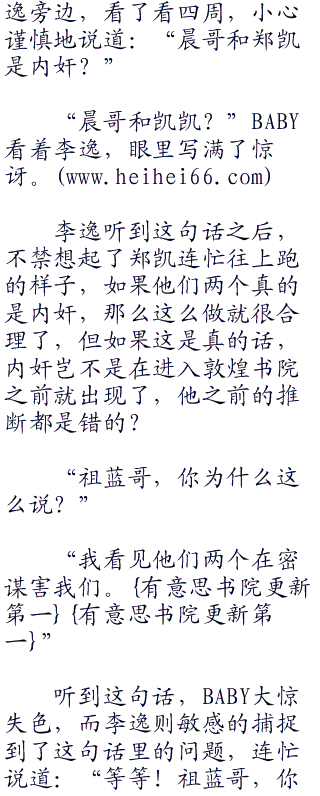 逸旁边，看了看四周，小心
谨慎地说道：“晨哥和郑凯
是内奸？”
“晨哥和凯凯？”BABY
看着李逸，眼里写满了惊
讶。(www.heihei66.com)
李逸听到这句话之后，
不禁想起了郑凯连忙往上跑
的样子，如果他们两个真的
是内奸，那么这么做就很合
理了，但如果这是真的话，
内奸岂不是在进入敦煌书院
之前就出现了，他之前的推
断都是错的？
“祖蓝哥，你为什么这
么说？”
“我看见他们两个在密
谋害我们。{有意思书院更新
第一}{有意思书院更新第
一}”
听到这句话，BABY大惊
失色，而李逸则敏感的捕捉
到了这句话里的问题，连忙
说道：“等等！祖蓝哥，你